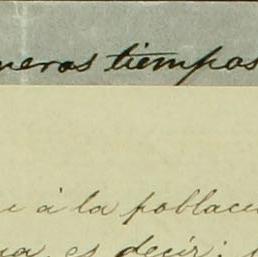 meros tiempos
à la poblaci
es decir;